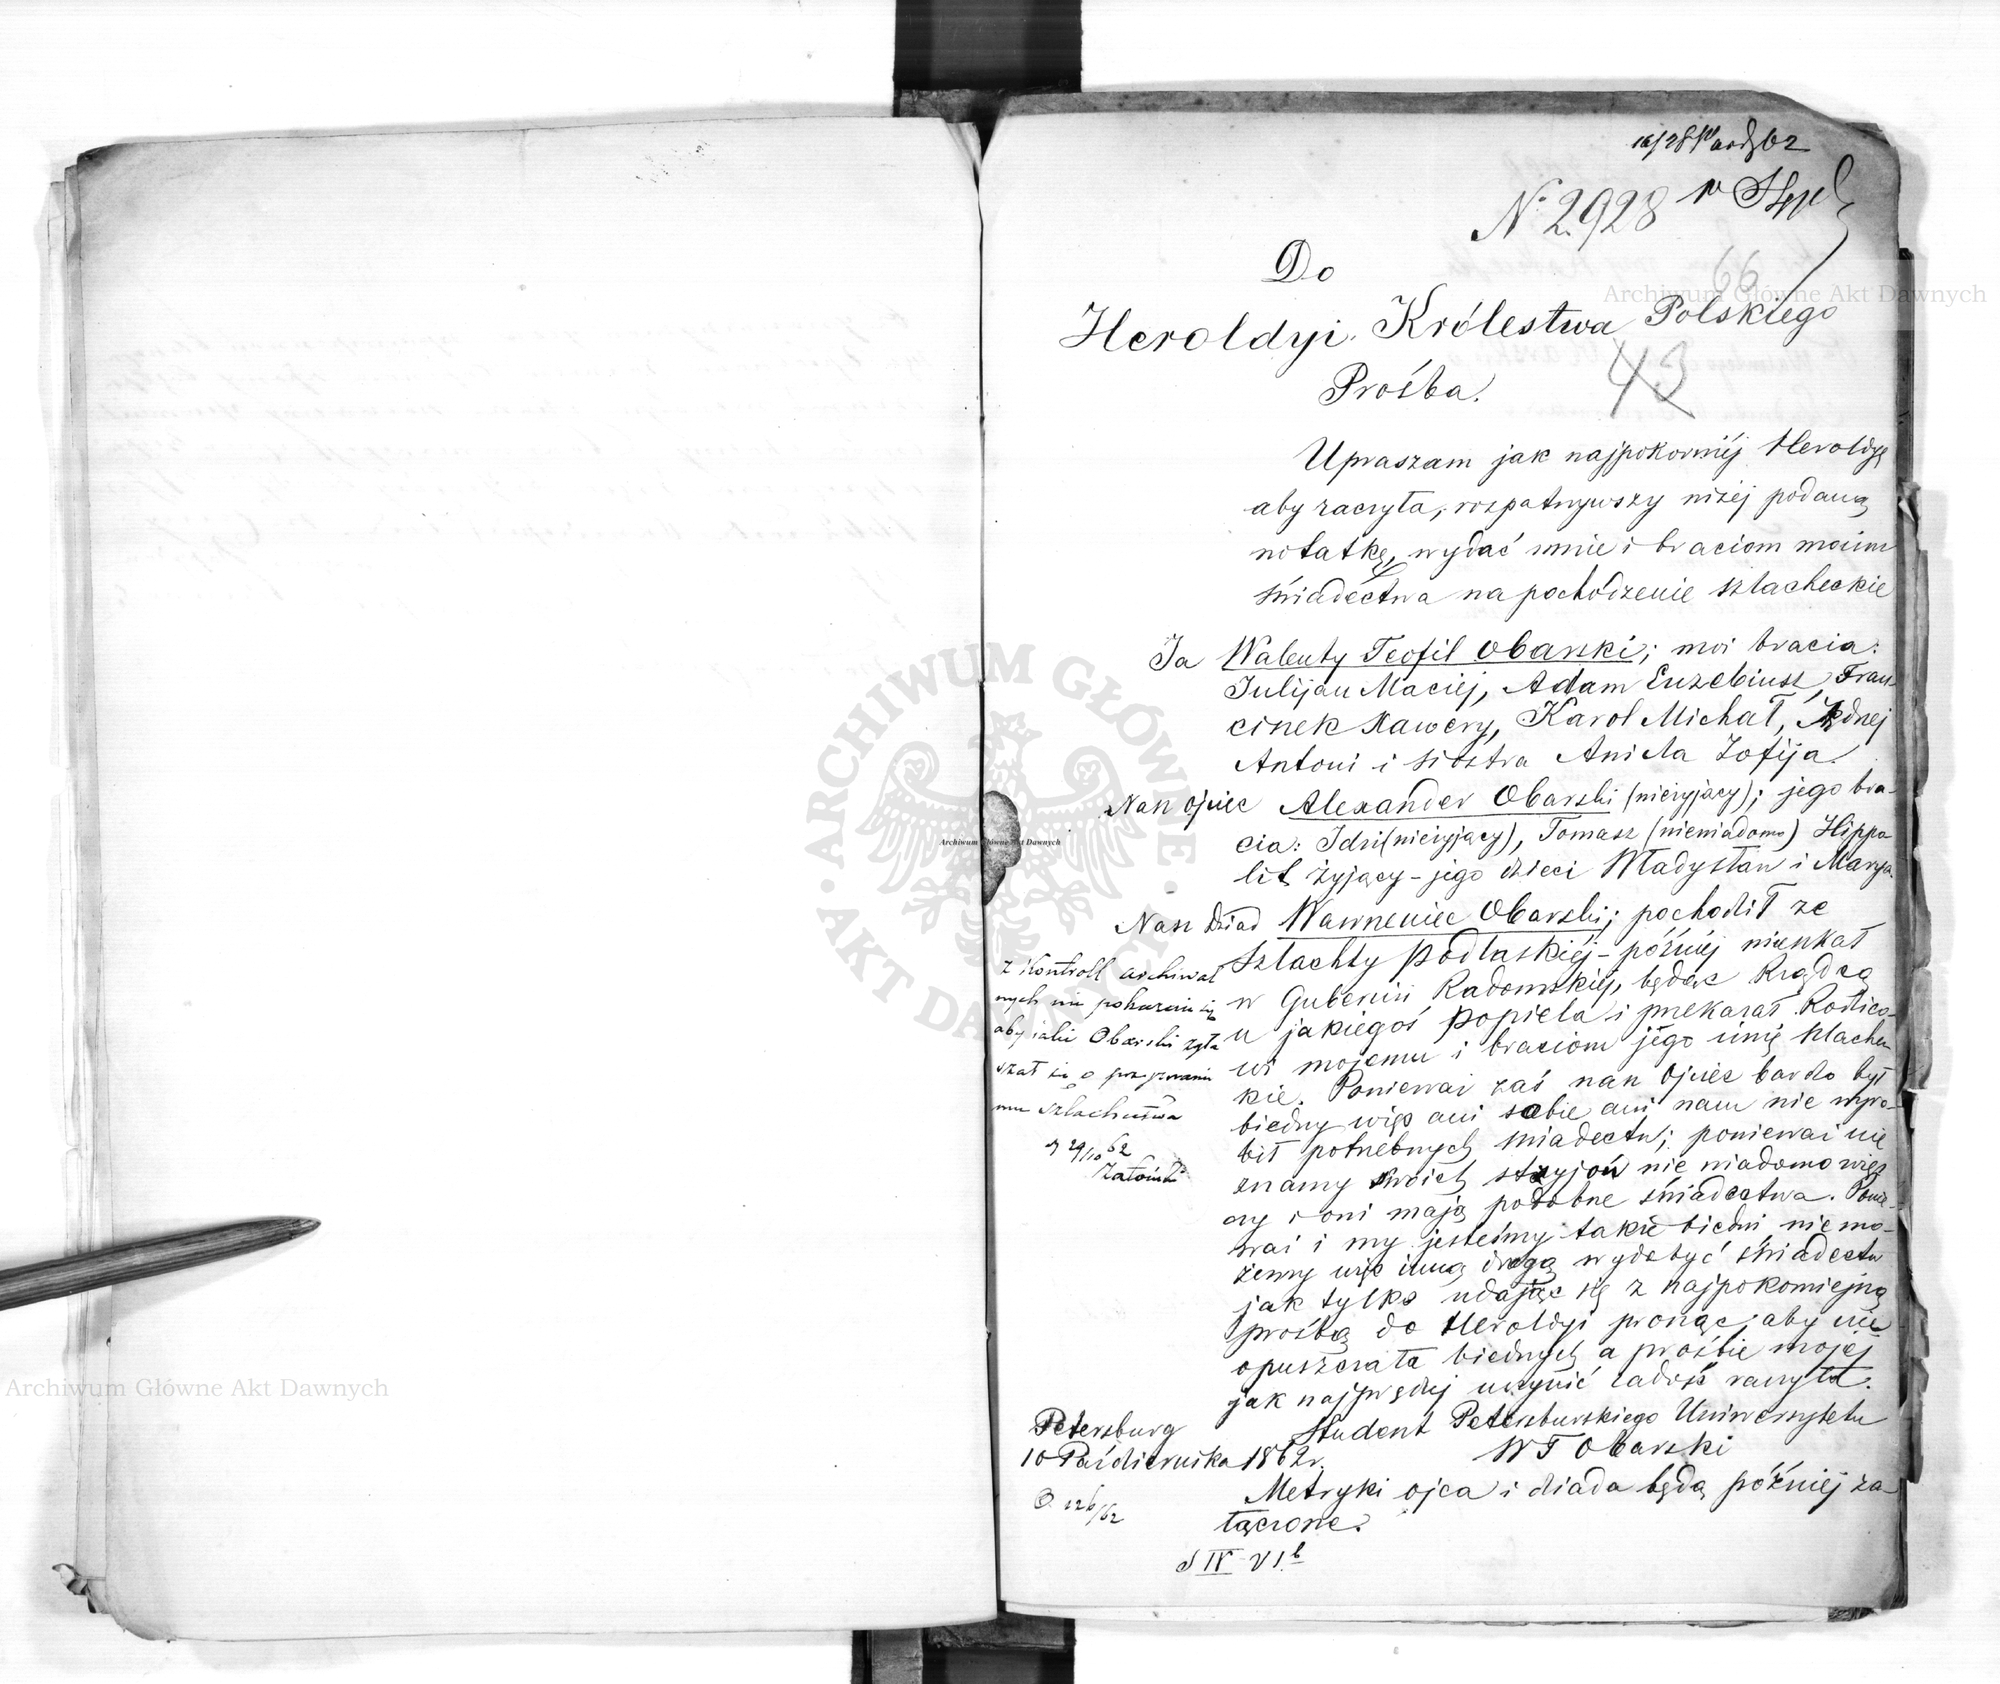 16/28 Paźdz 62
No 2928
66
Do
Heroldyi Królestwa Polskiego
43
Prośba.
Upraszam jak najpokorniéj Heroldyę
aby raczyła, rozpatrzywszy niżéj podaną
notatkę, wydać mnie i braciom moim
świadectwa na pochodzenie szlacheckie
Ja Walenty Teofil Obarski; moi bracia:
Julijan Maciej, Adam Euzebiusz, Fran-
ciszek Xawery, Karol Michał, Jędrzej
Antoni i siostra Aniela Zofija.
Nasz ojciec Alexander Obarski (nieżyjący); jego bra-
cia: Idzi (nieżyjący), Tomasz (niewiadomo) Hippo-
lit żyjący - jego dzieci Władysław i Marya.
Nasz dziad Wawrzeniec Obarski; pochodził ze
Szlachty podlaskiéj - późniéj mieszkał
w Gubernii Radomskiéj, będąc Rządcą
u jakiegoś Popiela i przekazał Rodzico-
wi mojemu i braciom jego imię szlachec-
kie. Ponieważ zaś nasz ojciec bardzo był
biedny więc ani sobie ani nam nie wyro-
bił potrzebnych świadectw; ponieważ nie
znamy swoich stryjów nie wiadomo więc
czy i oni mają podobne świadectwa. Ponie-
waż i my jesteśmy także biedni nie mo-
żemy więc inną drogą wydobyć świadectw
jak tylko udając się z najpokorniejszą
prośbą do Heroldyi prosząc, aby nie
opuszczała biednych a prośbie mojej
jak najprędzej uczynić zadość raczyła.
Student Petersburskiego Uniwersytetu
W T Obarski
Petersburg
10 Października 1862 r.
Metryki ojca i dziada będą późniéj za-
łączone.
z kontroll archiwal
nych nie pokazuie się
aby iaki Obarski zgła
szał się o przyznanie
mu szlachectwa
d 29/10 62
O. 126/62
S IV VI b
Archiwum Główne Akt Dawnych
ARCHIWUM GŁÓWNE AKT DAWNYCH
Archiwum Główne Akt Dawnych
Archiwum Główne Akt Dawnych